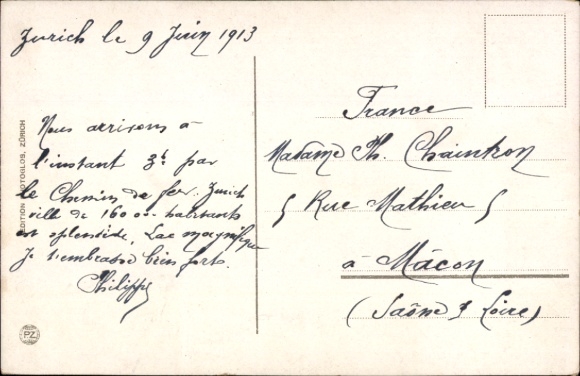 Zurich le 9 Juin 1913
Nous arrivons à
l'instant 3h par
le Chemin de fer. Zurich
ville de 160 000 habitants
est splendide, Lac magnifique
Je t'embrasse bien forts.
Philippe
EDITION PHOTOGLOB, ZÜRICH
PZ
France
Madame Ph. Chaintron
5 Rue Mathieu 5
à Mâcon
(Saône & Loire)